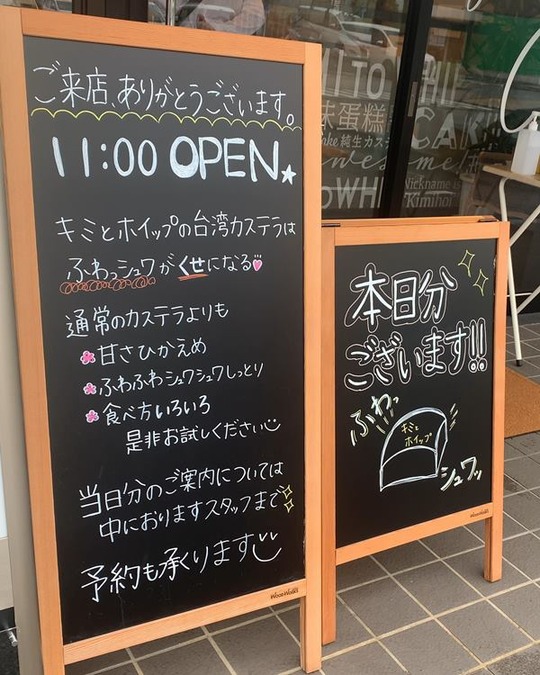 ご来店、ありがとうございます。
11:00 OPEN
キミとホイップの台湾カステラは
ふわっシュワがくせになる
通常のカステラよりも
甘さひかえめ
ふわふわシュワシュワしっとり
食べ方いろいろ
是非お試しください
当日分のご案内については
中におりますスタッフまで
予約も承くります
WoodWorks
本日分
ございます!!
ふわっ
キミと
ホイップ
シュワッ
蛋糕
純生カス
awesome!
Nickname is
"Kimihoi"